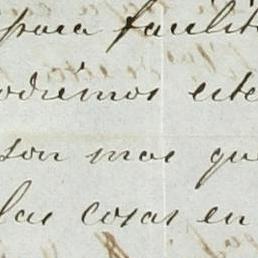 para facilit
odremos este
son mas que
las cosas en